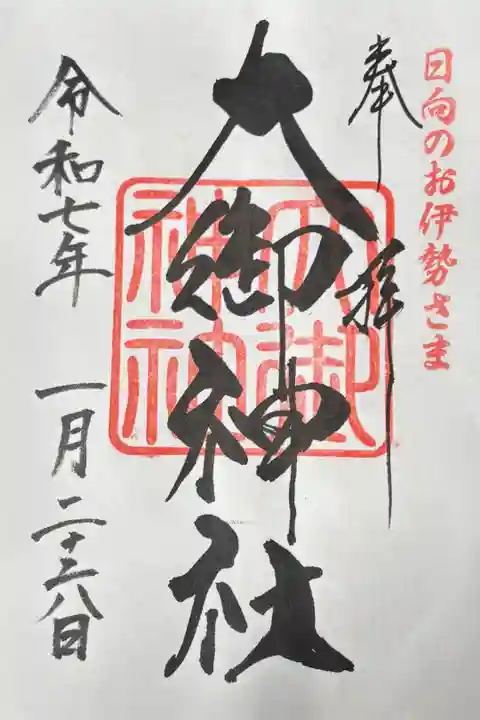 日向のお伊勢さま
奉拝
大御神社
大御
神社
令和七年 一月二十六日